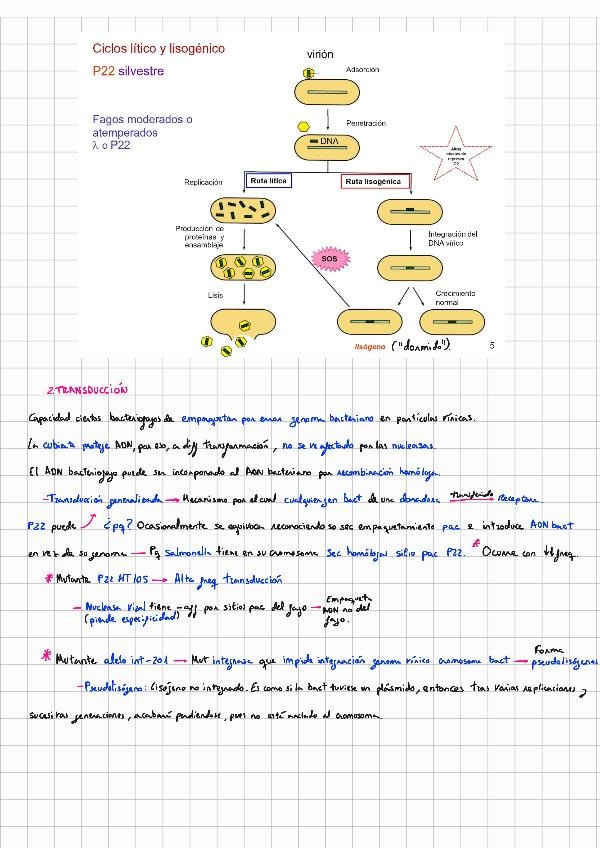 Ciclos lítico y lisogénico
P22 silvestre
virión
Adsorción
Fagos moderados o
atemperados
λ o P22
Penetración
DNA
Altos
niveles de
represor
C2
Replicación
Ruta lítica
Ruta lisogénica
Producción de
proteínas y
ensamblaje
Integración del
DNA vírico
SOS
Lisis
Crecimiento
normal
lisógeno ("dormido").
5
2. TRANSDUCCIÓN
Capacidad ciertos bacteriofagos de empaquetar por error genoma bacteriano en partículas víricas.
La cubierta protege ADN, por eso, a diff transformación, no se ve afectado por las nucleasas.
El ADN bacteriofago puede ser incorporado al ADN bacteriano por recombinación homóloga.
-Transducción generalizada → Mecanismo por el cual cualquier gen bact de una donadora transferido receptora.
P22 puede ¿pq? Ocasionalmente se equivoca reconociendo so sec empaquetamiento pac e introduce ADN bact
en vez de su genoma → Pq Salmonella tiene en su cromosoma sec homólogas sitio pac P22. * Ocurre con ↓↓ freq.
* Mutante P22 HT105 → Alta freq transducción
- Nucleasa viral tiene -aff por sitios pac del fago → Empaqueta
(pierde especificidad) ADN no del
fago.
* Mutante alelo int-201 → Mut integrasa que impide integración genoma vírico cromosoma bact → Forma
pseudolisógenos
-Pseudolisógeno: Lisógeno no integrado. Es como si la bact tuviese un plásmido, entonces tras varias replicaciones y
sucesivas generaciones, acabará perdiéndose, pues no está anclado al cromosoma.